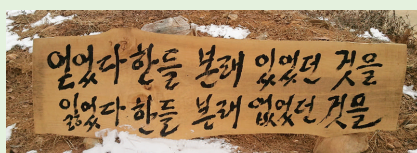 얻었다 한들 본래 있었던 것을
잃었다 한들 본래 없었던 것을